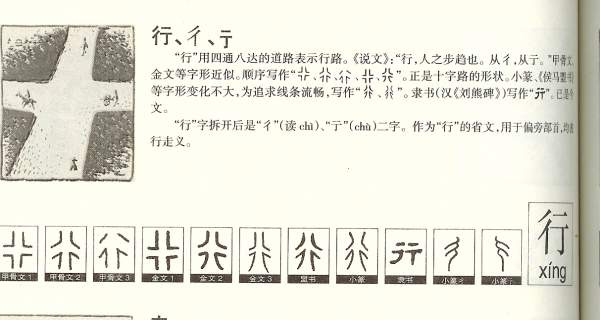 行、彳、亍
“行”用四通八达的道路表示行路。《说文》:“行,人之步趋也。从彳,从亍。”甲骨文、
金文等字形近似。顺序写作“”。正是十字路的形状。小篆、《侯马盟书》
等字形变化不大,为追求线条流畅,写作“”。隶书(汉《刘熊碑》)写作“行”。已是今
文。
“行”字拆开后是“彳”(读 chì)、“亍”(chù)二字。作为“行”的省文,用于偏旁部首,均有
行走义。
甲骨文 1 甲骨文 2 甲骨文 3 金文 1 金文 2 金文 3 盟书 小篆 隶书 小篆 彳 小篆 亍
行
xíng